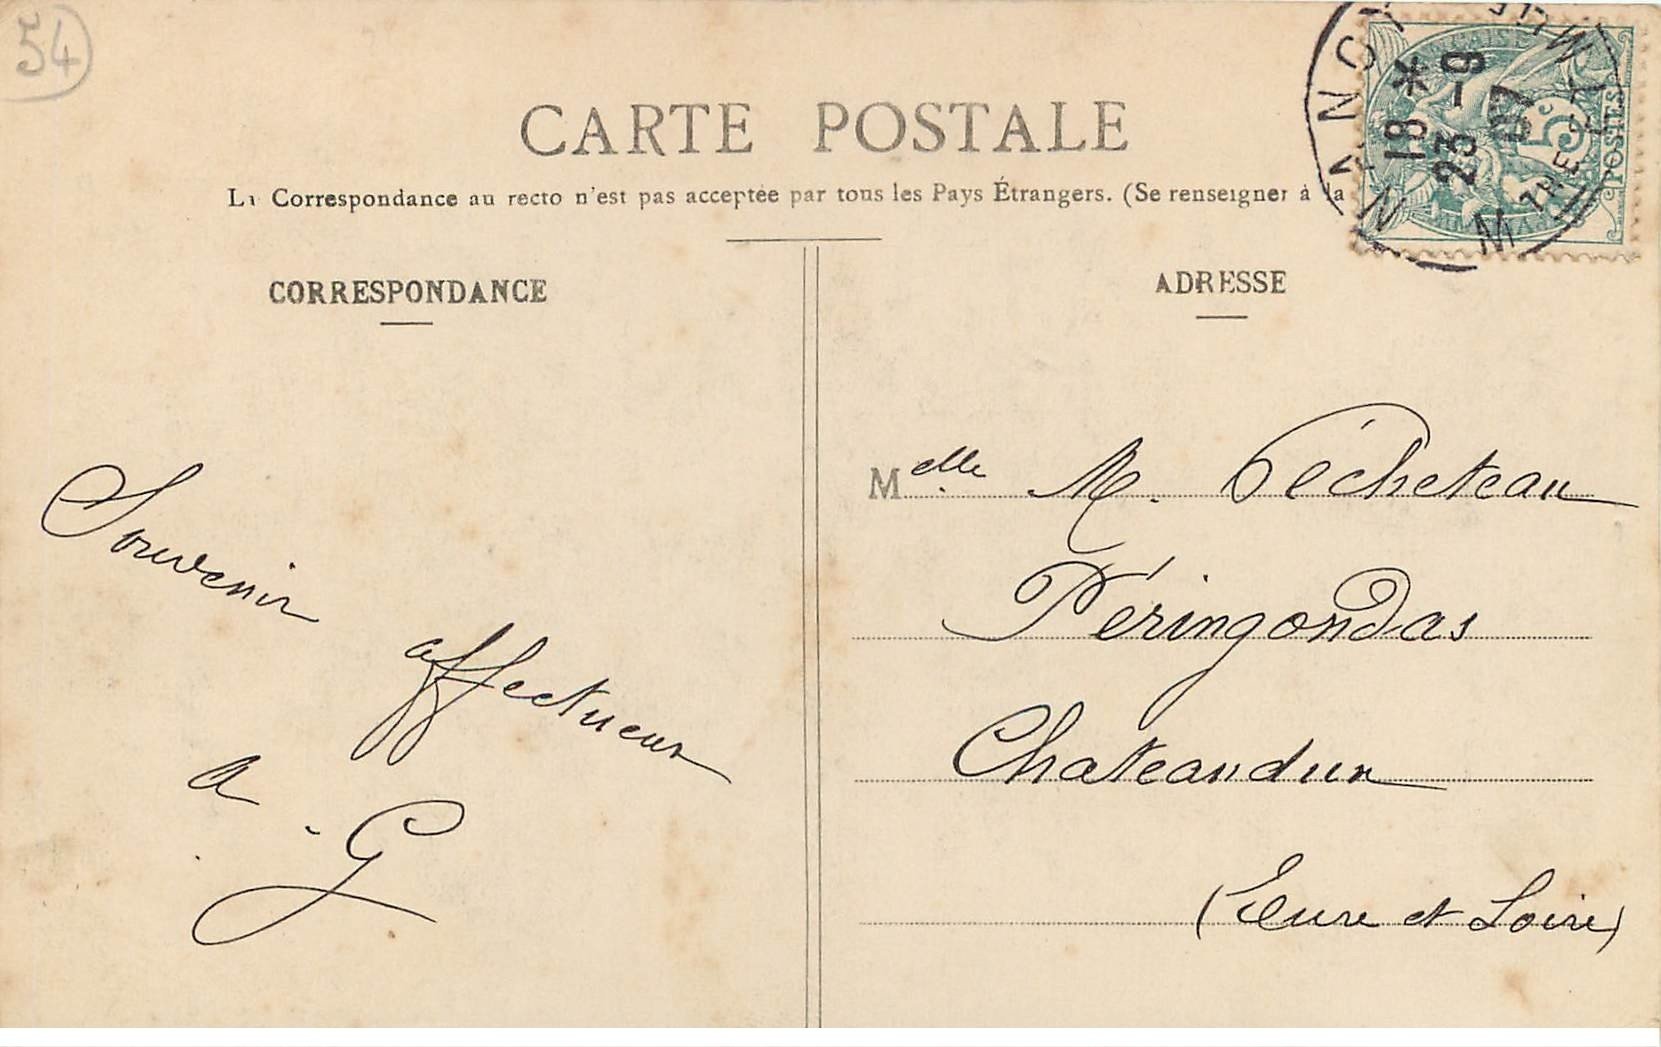 54
CARTE POSTALE
La Correspondance au recto n'est pas acceptée par tous les Pays Étrangers. (Se renseigner à la
CORRESPONDANCE
ADRESSE
NANCY
18 *
23 - 9
07
5c
POSTES
Souvenir
affectueux
A. G
Melle M. Pécheteau
Péringondas
Chateaudun
(Eure et Loire)